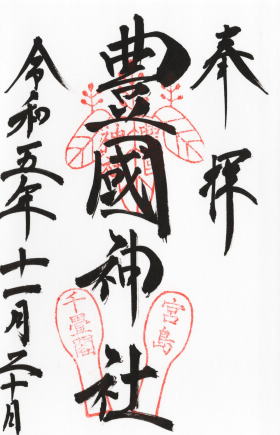 奉拝
豊國神社
宮島
千畳閣
令和五年十一月二十日